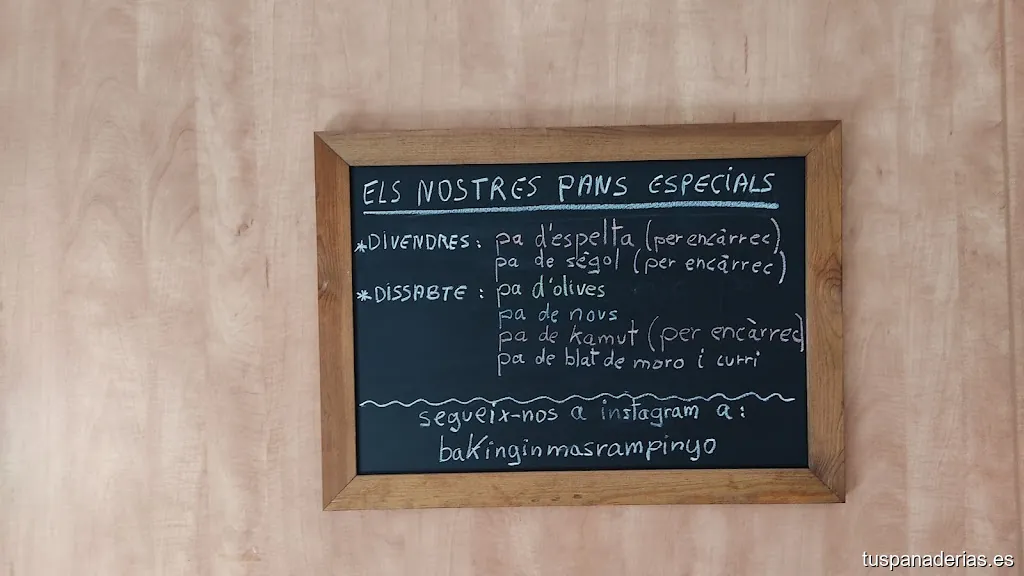 ELS NOSTRES PANS ESPECIALS
*DIVENDRES: pa d'espelta (per encàrrec)
pa de sègol (per encàrrec)
*DISSABTE: pa d'olives
pa de nous
pa de kamut (per encàrrec)
pa de blat de moro i curri
segueix-nos a instagram a:
bakinginmasrampinyo
tuspanaderias.es